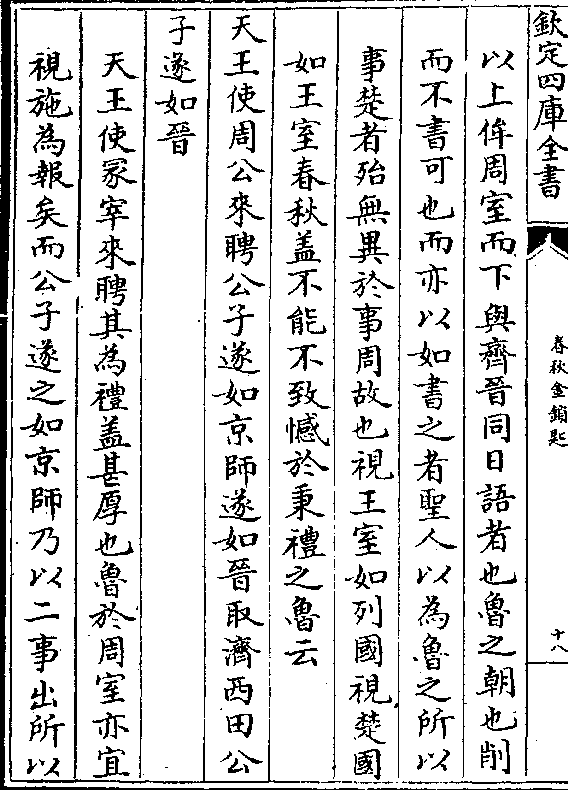 欽定四庫全書
春秋金鎖匙
十八
以上侔周室而下與齊晉同日語者也魯之朝也削
而不書可也而亦以如書之者聖人以為魯之所以
事楚者殆無異於事周故也視王室如列國視楚國
如王室春秋盖不能不致憾於秉禮之魯云
天王使周公來聘公子遂如京師遂如晉取濟西田公
子遂如晉
天王使冢宰來聘其為禮盖甚厚也魯於周室亦宜
視施為報矣而公子遂之如京師乃以二事出所以